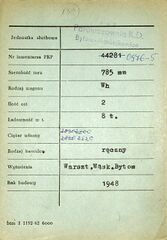 Jednostka służbowa
Parowozownia K.D.
Nr inwentarza PKP 44281 0516-5
Szerokość toru 785 mm
Rodzaj wagonu Wh
Ilość osi 2
Ładowność w t 8 t.
Ciężar własny
Rodzaj hamulca ręczny
Wytwórnia Warszt.Wąsk.Bytom
Rok budowy 1948